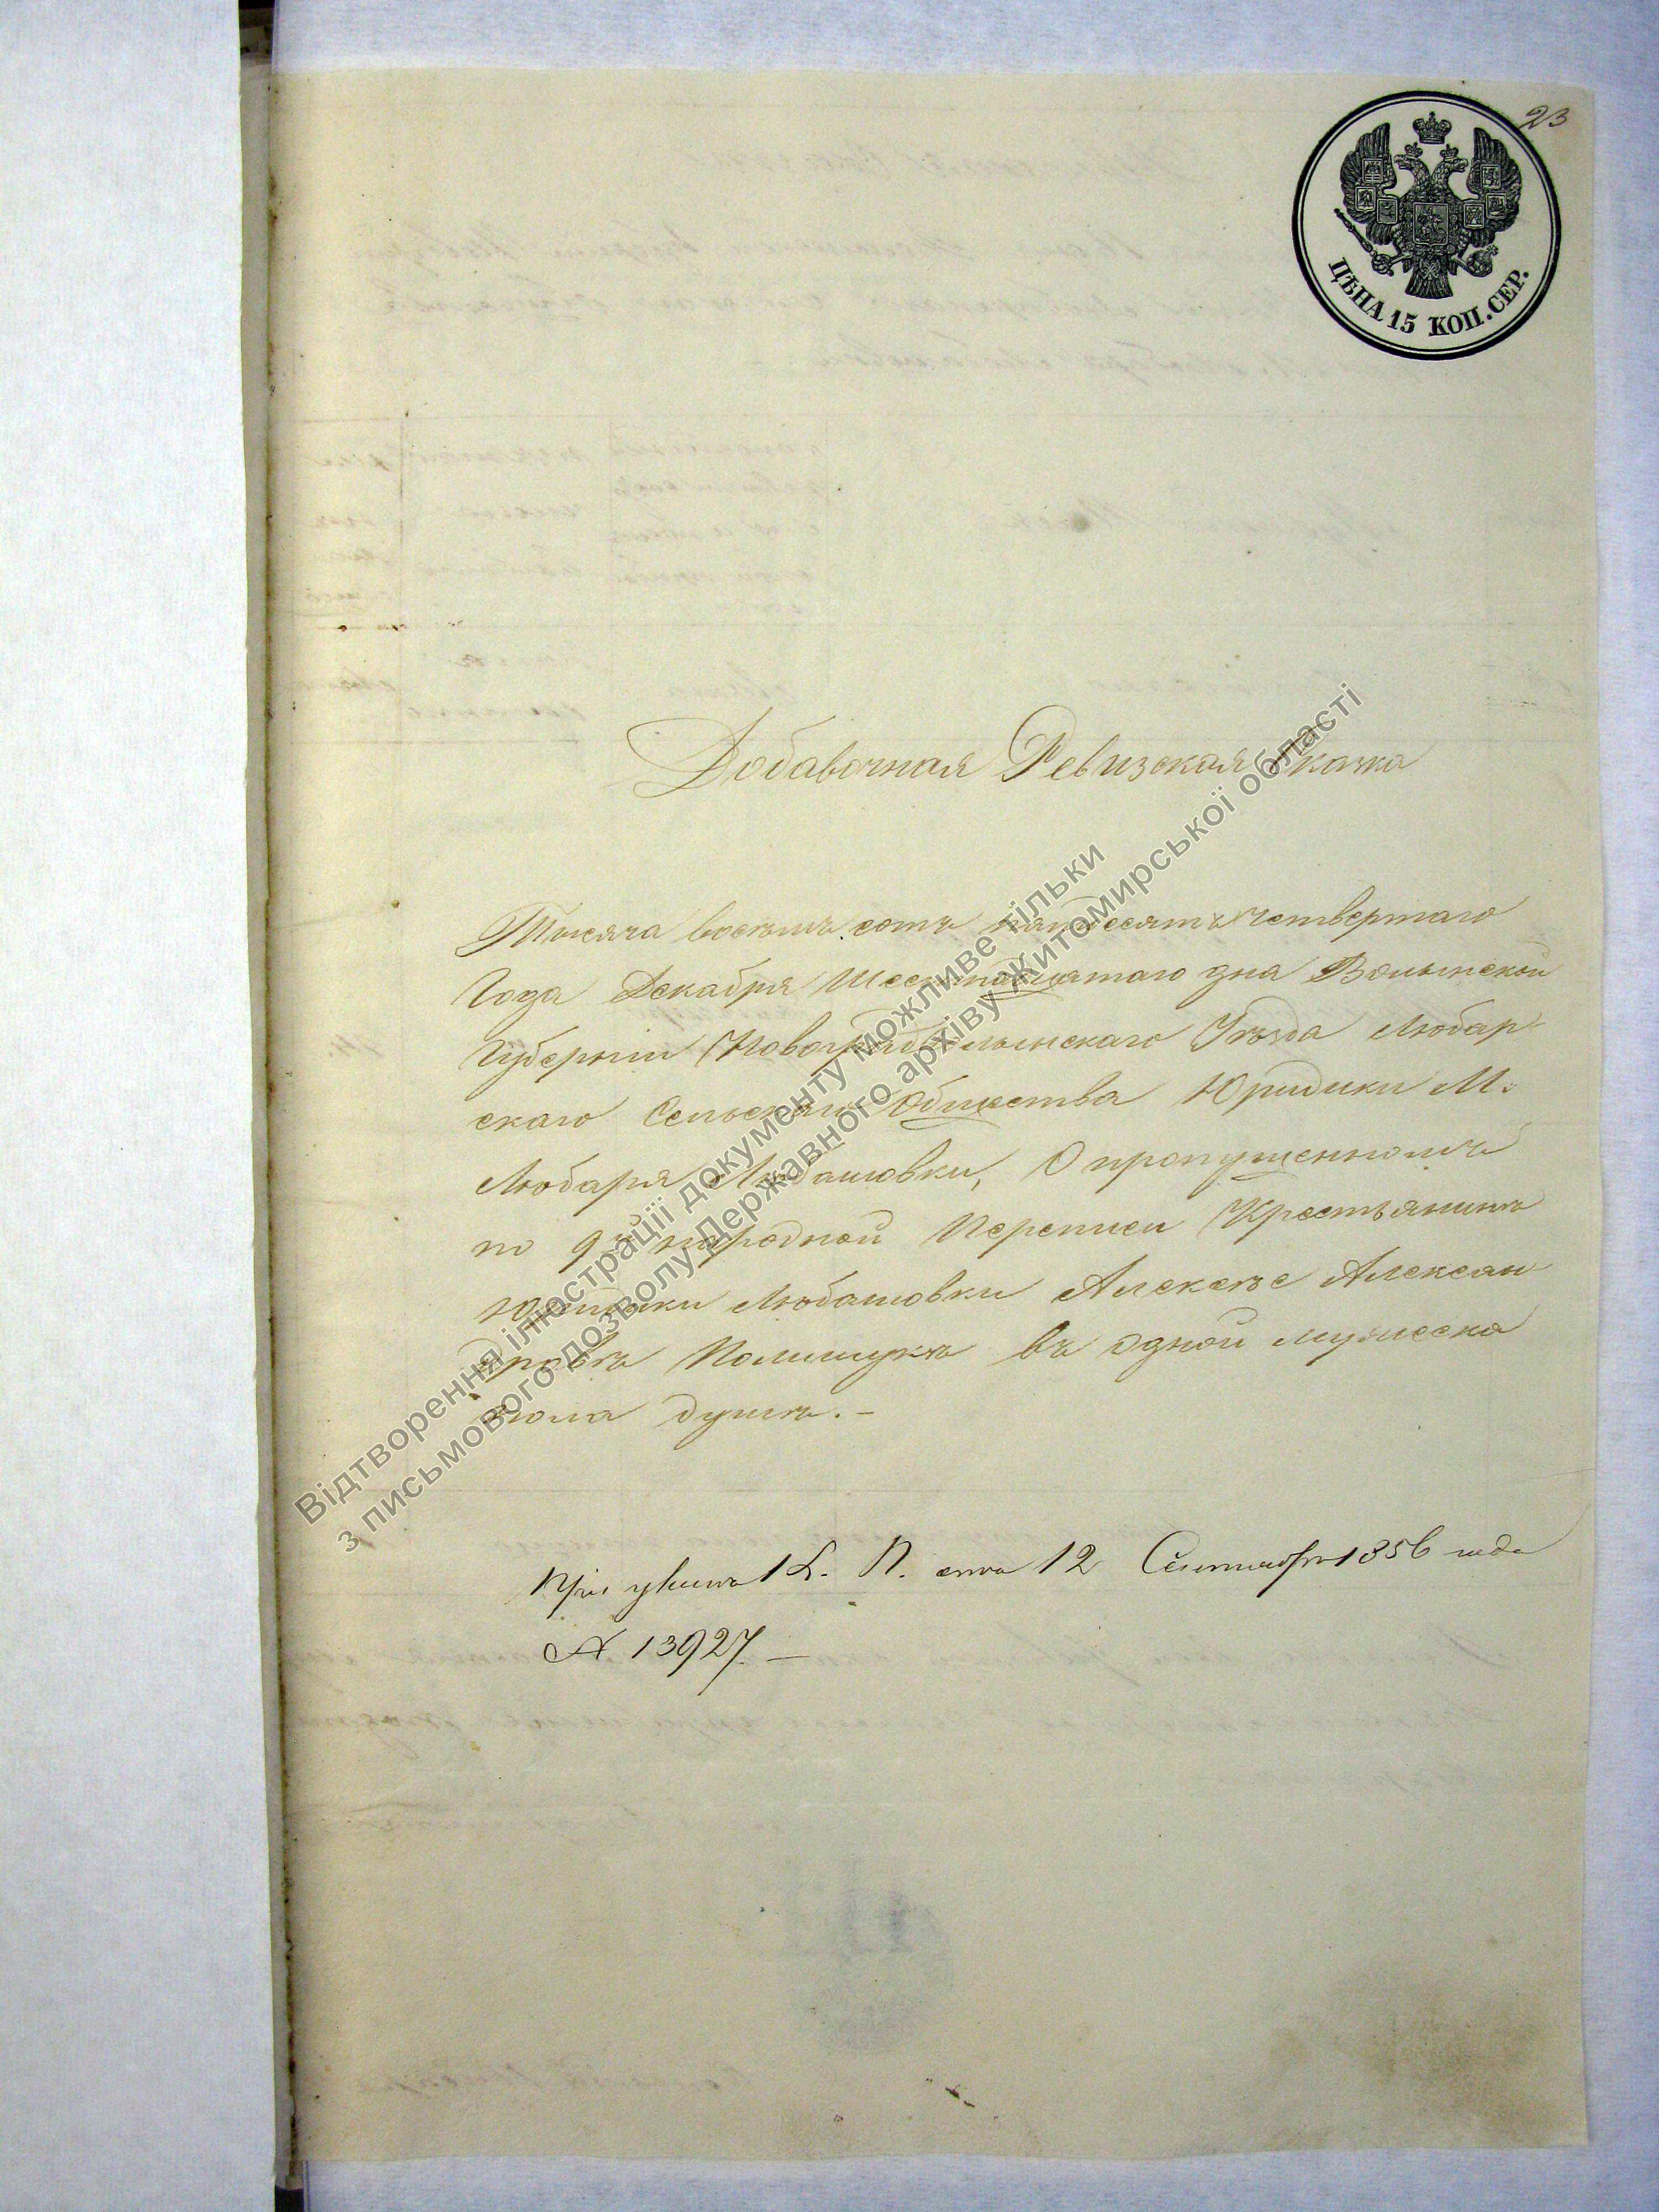 23
ЦѢНА 15 КОП. СЕР.
Добавочная Ревизская Сказка
Тысяча восемь сотъ пятдесятъ четвертаго
Года Декабря Шестнадцатаго дна Волынской
Губернiи Новоградволынскаго Уезда Любар-
скаго Сельскаго Общества Юридики М.
Любаря Любашовки, О пропущенномъ
по 9й народной Переписи Крестьянинѣ
Юридики Любашовки Алексѣе Алексан
дровѣ Полищукѣ въ одной мужеска
пола душѣ.-
При К. П. отъ 12 Сентября 1856 года
№ 13927.-
Відтворення ілюстрації документу можливе тільки
з письмового дозволу Державного архіву Житомирської області